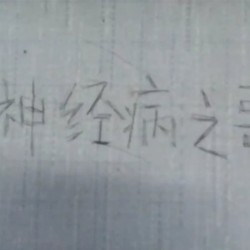 神经病之